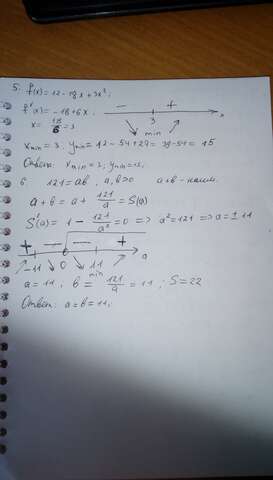 5. f(x) = 12 - 18x + 3x²;
f'(x) = -18 + 6x;
- +
x = 18/6 = 3
3 x
min
x min = 3, y min = 12 - 54 + 27 = 39 - 54 = 15
Ответ: x min = 3; y min =
6. 121 = ab, a, b > 0 a+b - наим.
a + b = a + 121/a = S(a)
S'(a) = 1 - 121/a² = 0 => a² = 121 => a = ± 11
+ - - +
-11 0 11 a
min
a = 11, b = 121/a = 11; S = 22
Ответ: a = b = 11;